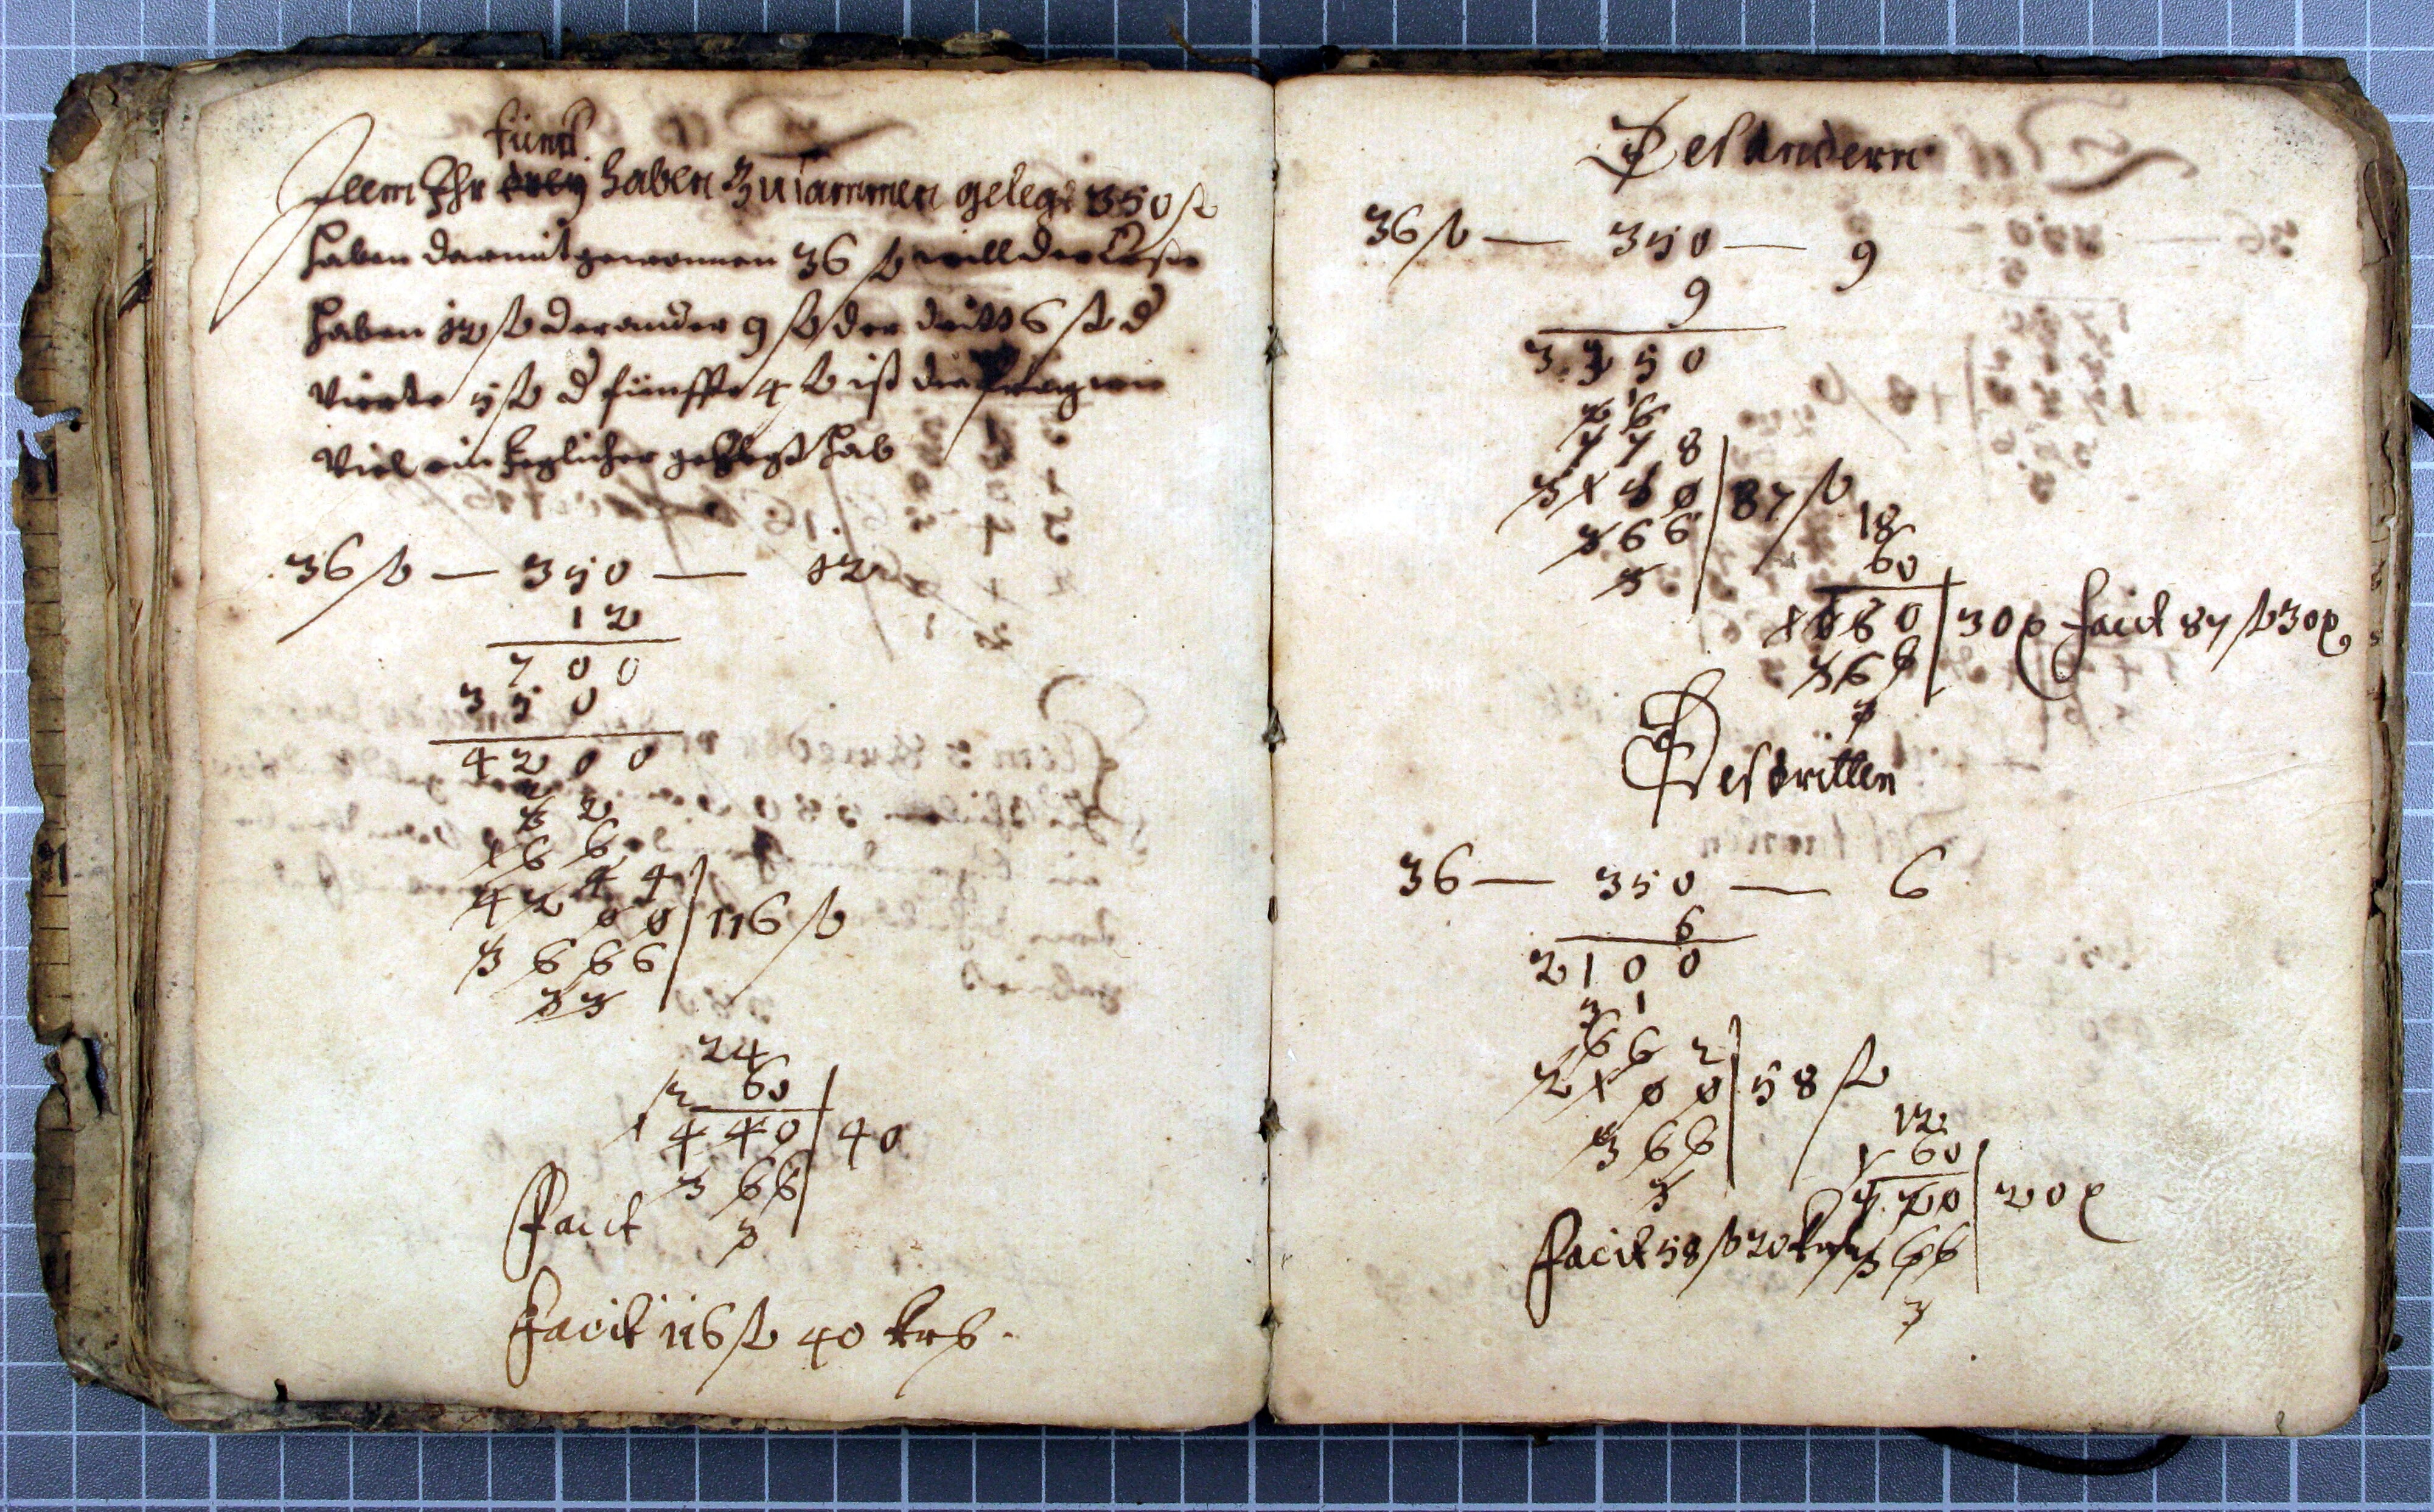 fünff
Item Ihr drey haben zusammen gelegt 350 fl
haben darmit gewonnen 36 fl will der Erste
haben 12 fl der ander 9 fl der dritt 6 fl d
vierte 5 fl d fünffte 4 fl ist die frag wie
viel ein jeglicher gelegt hab
36 fl — 350 — 12
12
700
350
4200
2
3 2
1 6 6
4 4
4 2 0 0 | 116 fl
3 6 6 6
3 3
24
60
1 2
4 4 0 | 40
3 6 6
3
Facit
Facit 116 fl 40 krß.
Des Andern
36 fl — 350 — 9
9
3150
2 6
7 7 8
3 1 5 0 | 87 fl
3 6 6
3
18
60
1080 | 30 x facit 87 fl 30 x
3 6 6
3
Des dritten
36 — 350 — 6
6
2100
3 1
6 6 2
2 1 0 0 | 58 fl
3 6 6
3
12
60
720 | 20 x
3 6 6
3
facit 58 fl 20